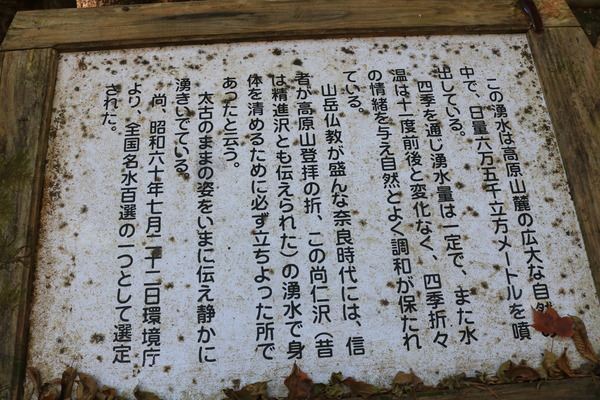 この湧水は高原山麓の広大な自然
中で、日量六万五千立方メートルを噴
出している。
四季を通じ湧水量は一定で、また水
温は十一度前後と変化なく、四季折々
の情緒を与え自然とよく調和が保たれ
ている。
山岳仏教が盛んな奈良時代には、信
者が高原山登拝の折、この尚仁沢（昔
は精進沢とも伝えられた）の湧水で身
体を清めるために必ず立ちよった所で
あったと云う。
太古のままの姿をいまに伝え静かに
湧きいでている。
尚、昭和六十年七月二十二日環境庁
より、全国名水百選の一つとして選定
された。